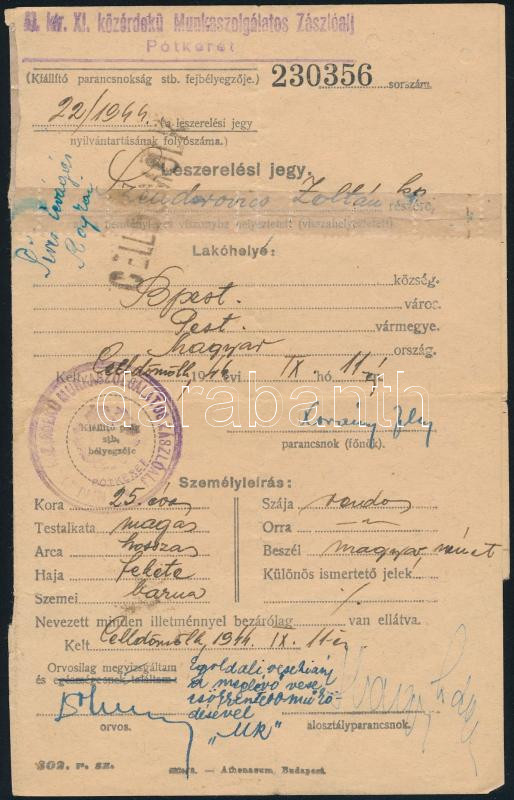 M. kir. XI. közérdekű Munkaszolgálatos Zászlóalj
Pótkeret
(Kiállító parancsnokság stb. fejbélyegzője.) 230356 sorszám.
22/1944. (a leszerelési jegy
nyilvántartásának folyószáma.)
CELLDÖMÖLK
Leszerelési jegy.
Zoltán részére,
Lakóhelye:
község.
Bpest. város.
Pest. vármegye.
Magyar ország.
Kelt Celldömölk, 1944 évi IX. hó 11-
parancsnok (főnök).
Kiállító
stb.
bélyegzője
PÓTKERET
darabanth
Személyleírás:
Kora 25. éves Szája rendes
Testalkata magas Orra
Arca hosszas Beszél magyar, német
Haja fekete Különös ismertető jelek
Szemei barna
Nevezett minden illetménnyel bezárólag van ellátva.
Kelt Celldömölk, 1944. IX. 11-én
Orvosilag megvizsgáltam
és egészségesnek találtam
Egyoldali vesehiány
a meglévő vese
csökkentett műkö
désével
"MK"
orvos. alosztályparancsnok.
302. r. sz. Athenaeum, Budapest.